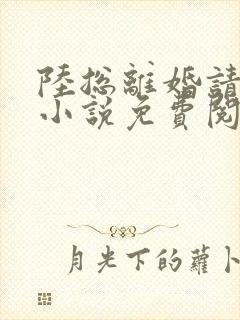 陸總離婚請
小說免費閱
月光下的蘿卜